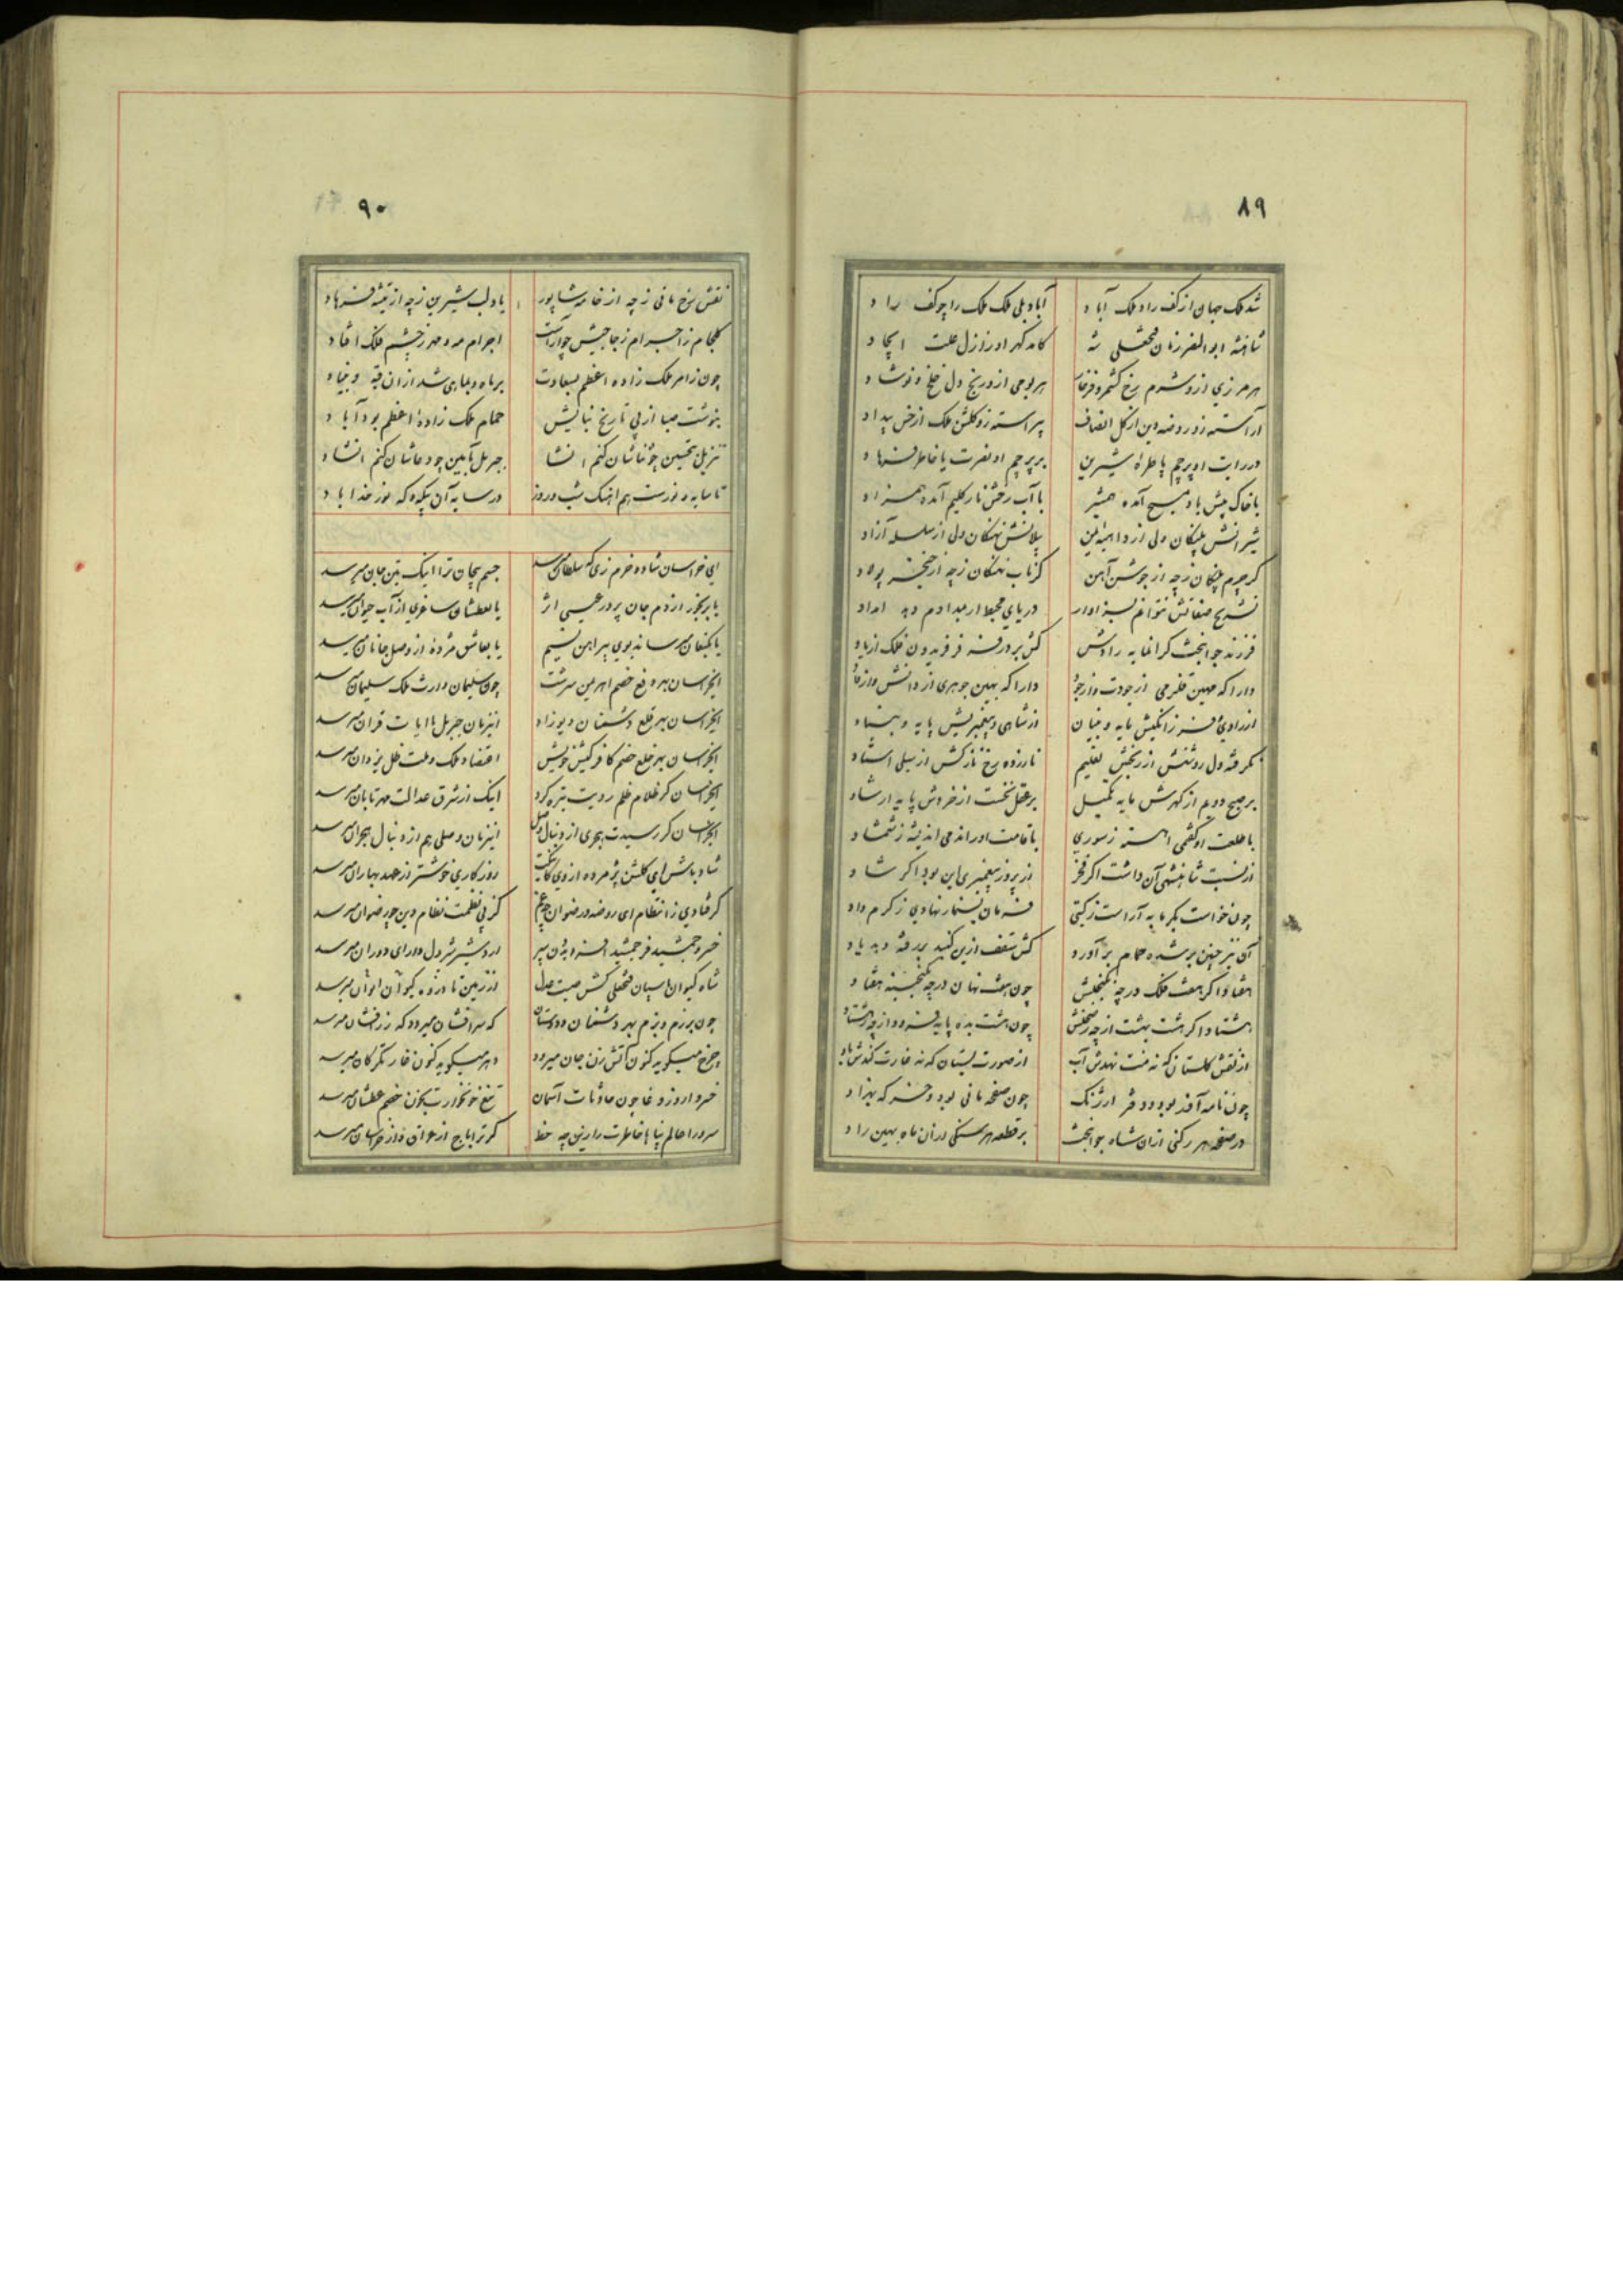 ۸۹
شد ملک جهان از کف راد ملک آباد آباد بلی ملک ملک را چو کف راد
شاهنشه ابوالنصر زمان فتحعلی شه کامد گهر او ز ازل علت ایجاد
هر مرزی ازو شرم رخ کشمر و فرخار هر بومی ازو رنج دل خلخ و نوشاد
آراسته زو روضه دین از گل انصاف پیراسته زو گلشن ملک از خس بیداد
در رایت او پرچم یا طره شیرین بر پرچم او نصرت یا خاطر فرهاد
با خاک پیش باد مسیح آمده همشیر با آب رخش نار کلیم آمده همزاد
شیرانش پلنگان ولی از پیلانش نهنگان ولی از سلسله آزاد
گر چرم پلنگان زچه از جوشن آهن گر ناب نهنگان زچه از خنجر پولاد
تشریح صفاتش نتوانم بسزا وار دریای محیط ار مدادم دهد امداد
فرزند جوانبخت گرانمایه رادش کش پرورش فر فریدون ملک از یاد
دارا که مهین قلزمی از جودت و از جود دارا که بهین جوهری از دانش و از داد
از رادی فرزانگیش مایه و بنیان از شاهی و پیغمبریش پایه و بنیاد
نگرفته دل روشنش از رنجش تعلیم نازرده رخ نازکش از سیلی استاد
بر صبح دویم از گهرش مایه تکمیل بر عقل نخست از خردش پایه ارشاد
با طلعت او گفتمی آهسته ز سوری با قامت او راندمی اندیشه ز شمشاد
از نسبت شاهنشهی آن داشت اگر فخر از پرورش پیغمبری این بود اگر شاد
چون خواست که گرمابه آراست ز گیتی فرمان به نهادی ز کرم داد
آن نیز چنین بر شده حمام برآورد کش سقف ازین گنبد بررفته دهد یاد
هفتاد اگر هفت فلک در چه گنجش چون هفت نهان در چه گنجینه هفتاد
هشتاد اگر هشت بهشت از چه ز صحنش چون هشت بده پایه فزود از چه ز هشتاد
از نقش گلستان که نه منت نهدش آب از صورت بستان که نه غارت کندش باد
چون نامه آفد بود و دفتر ارژنگ چون صفحه مانی بود و حسن که بهزاد
در صفحه هر رکنی ازان شاه جوانبخت بر قطعه هر سنگی ازان ماه بهین راد
۹۰
نقش رخ مانی زچه از خامه شاپور یا دلب شیرین زچه از تیشه فرهاد
گلجام ز اجرام زجاجیش چو آراست اجرام مه و مهر ز چشم فلک افتاد
چون ز امر ملک زاده اعظم بسعادت بر ماه و بماهی شد ازان قبه و بنیاد
بنوشت صبا از پی تاریخ بنایش حمام ملک زاده اعظم بود آباد
تنزیل بتحسین چو ثناشان کنم انشا جبریل بآمین چو دعاشان کنم انشاد
تا سایه و نورست هم آهنگ شب و روز در سایه آن پیکره که نور خدا باد
ای خراسان شاد و خرم زی که سلطان میرسد جسم بیجان ترا اینک بتن جان میرسد
یا برنجور از دم جان پرور عیسی اثر یا بعطشان ساغری از آب حیوان میرسد
یا بکنعان میرساند بوی پیراهن نسیم یا بعاشق مژده از وصل جانان میرسد
ای خراسان بهر دفع خصم اهرمن سرشت چون سلیمان وارث ملک سلیمان میرسد
ای خراسان بهر قلع دشمنان دیو زاد این زمان جبریل با آیات قران میرسد
ای خراسان بهر خلع خصم کافر کیش خویش اقتضاد ملک و ملت ظل یزدان میرسد
ای خراسان گر ظلام ظلم رویت تیره کرد اینک از شرق عدالت مهر تابان میرسد
ای خراسان گر رسیدت هجری از دنبال وصل این زمان وصلی هم از دنبال هجران میرسد
شاد باش ای گلشن پژمرده از دی روزگاری خوشتر از عهد بهاران میرسد
گر فتادی ز انتظام ای روضه رضوان چه غم کز پی نظمت نظام دین چو رضوان میرسد
خسرو جمشید فر جمشید افریدون سیر اردشیر شیردل دارای دوران میرسد
شاه کیوان پاسبان فتحعلی کش صیت عدل از زمین تا ذروه کیوان ایوان میرسد
چون برزم و بزم بهر دشمنان و دوستان که سرافشان میرود که زرفشان میرسد
چرخ میگوید کنون آتش زن جان میرود دهر میگوید کنون غارتگر کان میرسد
خسروا روز وغا چون حادثات آسمان تیغ خونخوارت بخون خصم عطشان میرسد
سرورا عالم پناها خاطرت را زین چه حظ گر ترا باج از عراق و از خراسان میرسد